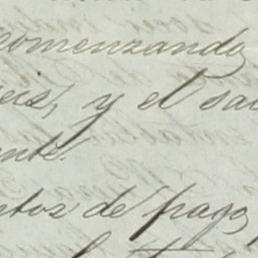 comenzando
eis, y el sal
ente.
ntos de pago,